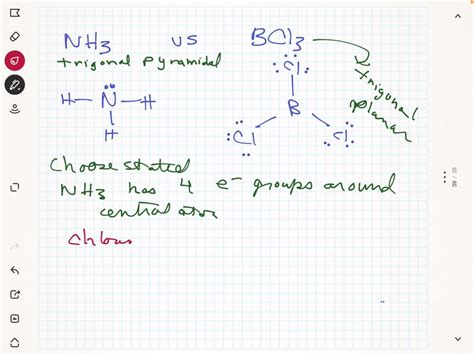 NH3 vs BCl3
trigonal pyramidal
trigonal planar
H N H
H
Cl
B
Cl Cl
Choose stated
NH3 has 4 e- groups around
central atom